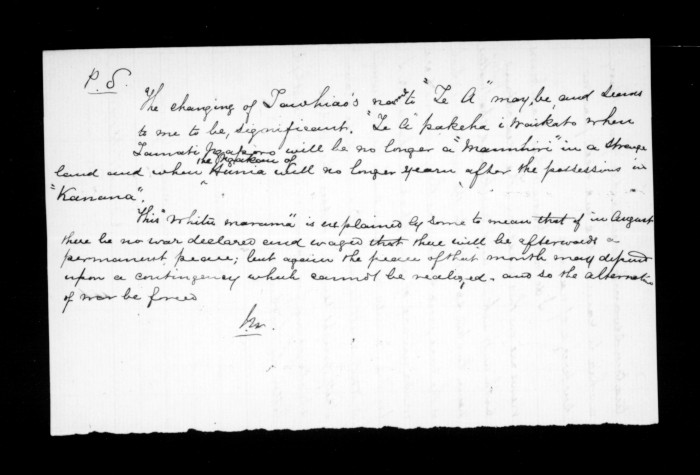 P.S.
The changing of Tawhiao's name to "Te A" may, be, and seems
to me to be, significant. "Te A" pakeha i Waikato when
Tamati Ngapora will be no longer a "Manuhiri" in a strange
land and when the Ngakau of Hunia will no longer yearn after the possessions in
"Kanana".
This "whitu marama" is explained by some to mean that if in August
there be no war declared and waged that there will be afterwards a
permanent peace; but again the peace of that month may depend
upon a contingency which cannot be realized. and so the alternative
of war be forced